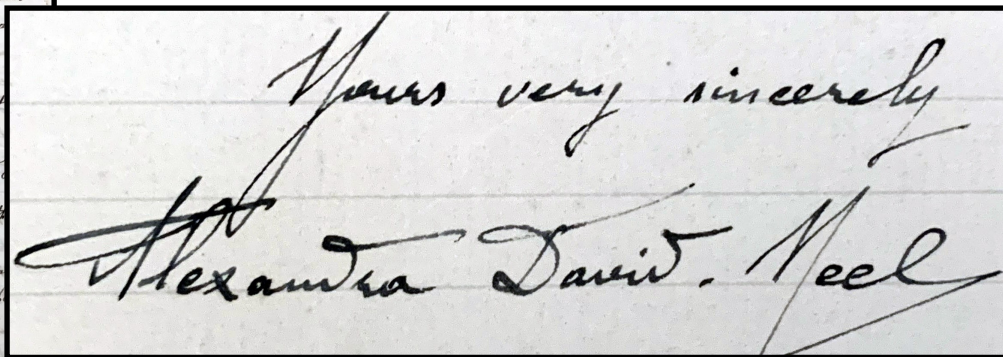 Yours very sincerely
Alexandra David. Neel